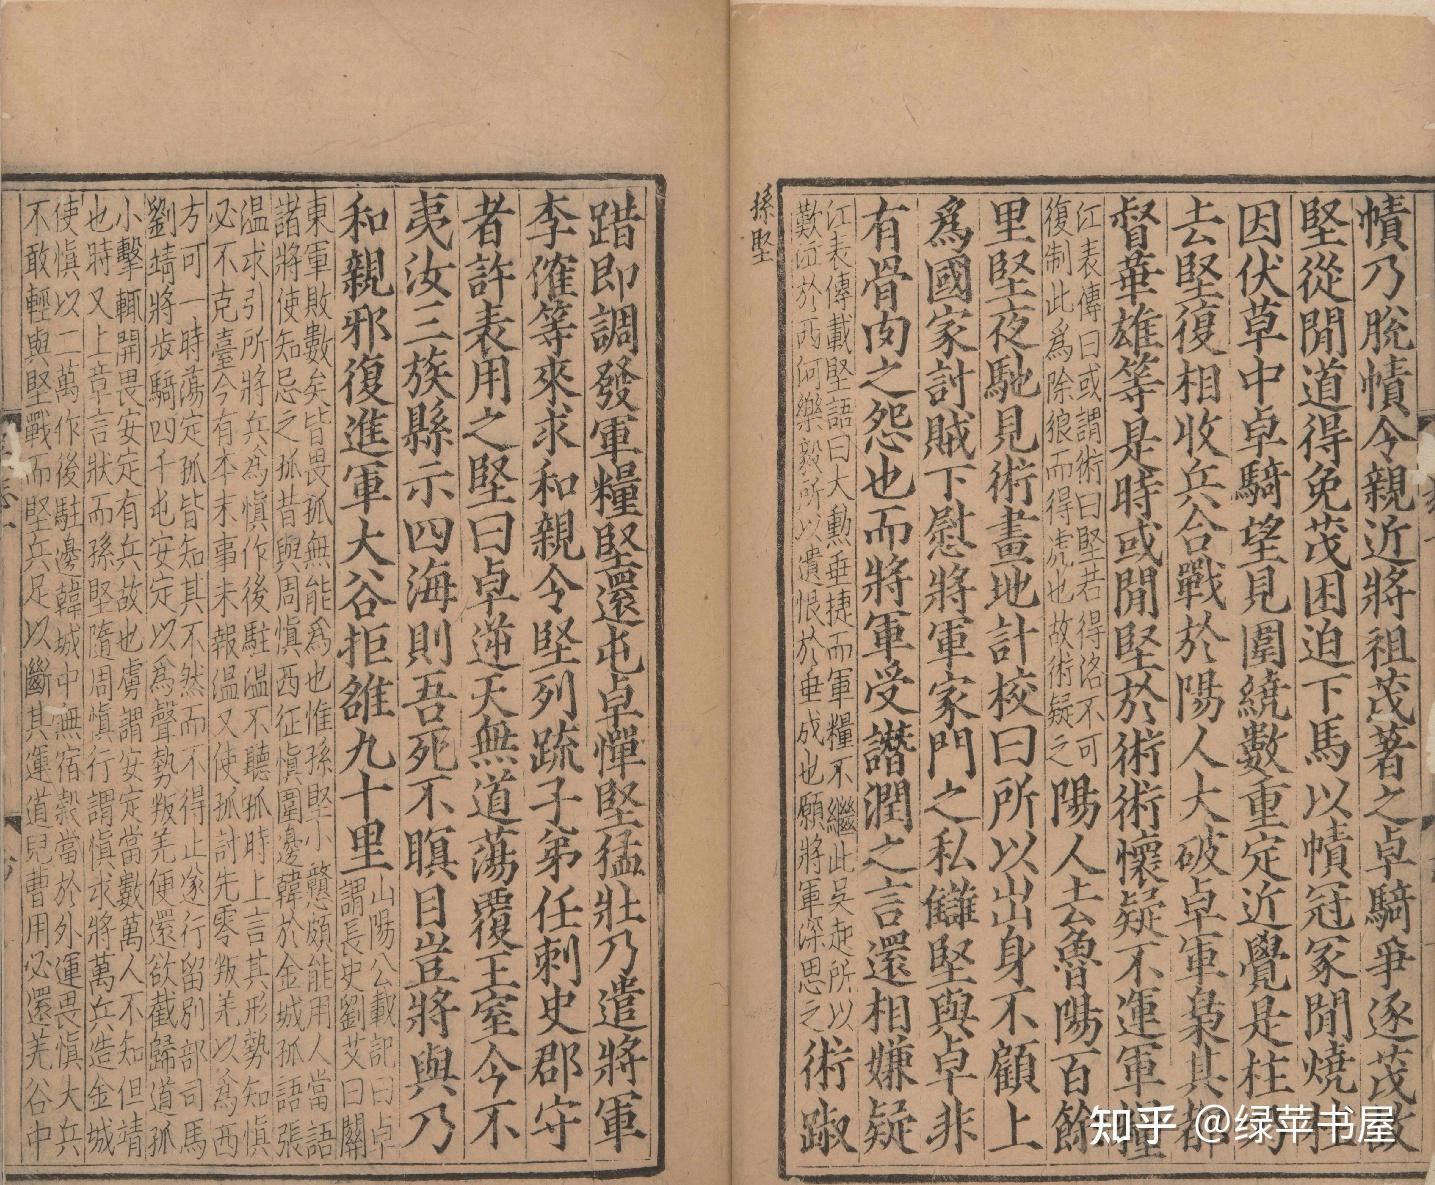 幘乃脫幘令親近將祖茂著之卓騎爭逐茂故
堅從閒道得免茂困迫下馬以幘冠冢閒燒柱
因伏草中卓騎望見圍繞數重定近覺是柱乃
去堅復相收兵合戰於陽人大破卓軍梟其都
督華雄等是時或閒堅於術術懷疑不運軍糧
江表傳曰或謂術曰堅若得洛不可
復制此爲除狼而得虎也故術疑之
陽人去魯陽百餘
里堅夜馳見術畫地計校曰所以出身不顧上
爲國家討賊下慰將軍家門之私讎堅與卓非
有骨肉之怨也而將軍受譖潤之言還相嫌疑
江表傳載堅語曰大勳垂捷而軍糧不繼此吳起所以
歎泣於西河樂毅所以遺恨於垂成也願將軍深思之
術踧
孫堅
踖即調發軍糧堅還屯卓憚堅猛壯乃遣將軍
李傕等來求和親令堅列疏子弟任刺史郡守
者許表用之堅曰卓逆天無道蕩覆王室今不
夷汝三族縣示四海則吾死不瞑目豈將與乃
和親邪復進軍大谷拒雒九十里
山陽公載記曰卓
謂長史劉艾曰關
東軍敗數矣皆畏孤無能爲也惟孫堅小戇頗能用人當語
諸將使知忌之孤昔與周慎西征慎圍邊韓於金城孤語張
溫求引所將兵為慎作後駐溫不聽孤時上言其形勢知慎
必不克臺今有本末事未報溫又使孤討先零叛羌以為西
方可一時蕩定孤皆知其不然而不得止遂行留別部司馬
劉靖將步騎四千屯安定以爲聲勢叛羌便還欲截歸道孤
小擊輒開畏安定有兵故也虜謂安定當數萬人不知但靖
也時又上章言狀而孫堅隨周慎行謂慎求將萬兵造金城
使慎以二萬作後駐邊韓城中無宿穀當於外運畏慎大兵
不敢輕與堅戰而堅兵足以斷其運道兒曹用必還羌谷中
知乎 @绿苹书屋